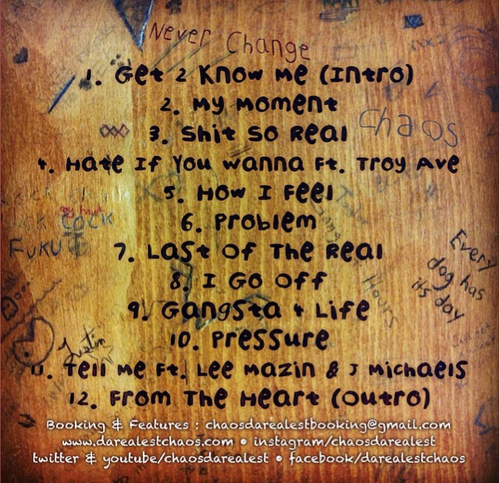 Never Change
1. Get 2 Know Me (Intro)
2. My Moment
3. Shit So Real
Chaos
4. Hate If You Wanna Ft. Troy Ave
5. How I Feel
6. Problem
FUKU
7. Last Of The Real
Every
dog has
its day
8. I Go Off
9. Gangsta 4 Life
10. Pressure
Justin
11. Tell Me Ft. Lee Mazin & J Michaels
12. From The Heart (Outro)
Booking & Features : chaosdarealestbooking@gmail.com
www.darealestchaos.com • instagram/chaosdarealest
twitter & youtube/chaosdarealest • facebook/darealestchaos